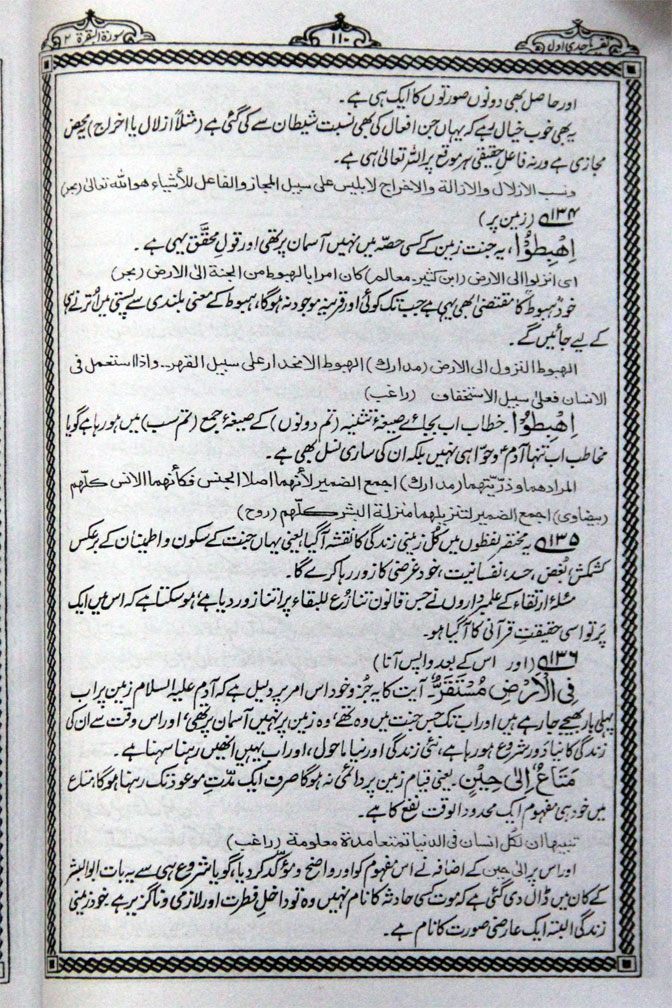 تفسیر ماجدی اول
۱۱۰
سورۃ البقرۃ ۲
اور حاصل بھی دونوں صورتوں کا ایک ہی ہے۔
یہ بھی خوب خیال رہے کہ یہاں جن افعال کی بھی نسبت شیطان سے کی گئی ہے (مثلاً ازلال یا اخراج) یہ محض
مجازی ہے ورنہ فاعل حقیقی ہر موقع پر اللہ تعالیٰ ہی ہے۔
ونسب الازلال والازالة والاخراج لابليس على سبيل المجاز والفاعل للأشياء هو الله تعالىٰ (بحر)
۱۳۴ (زمین پر)
اِهْبِطُوْا، یہ جنت زمین کے کسی حصّہ میں نہیں آسمان پر تھی اور قولِ محقَّق یہی ہے۔
ای انزلوا الی الارض (ابن کثیر۔ معالم) كان امرا بالهبوط من الجنة الی الارض (بحر)
خود ہبوط کا مقتضیٰ بھی یہی ہے جب تک کوئی اور قرینہ موجود نہ ہوگا، ہبوط کے معنی بلندی سے پستی میں اُترنے ہی
کے لیے جائیں گے۔
الهبوط النزول الی الارض (مدارك) الهبوط الانحدار على سبيل القهر۔۔ واذا استعمل فى
الانسان فعلىٰ سبيل الاستخفاف (راغب)
اِهْبِطُوْا خطاب اب بجائے صیغۂ تثنیہ (تم دونوں) کے صیغۂ جمع (تم سب) میں ہو رہا ہے گویا
مخاطب اب تنہا آدم ؑ وحوّا ہی نہیں بلکہ ان کی ساری نسل بھی ہے۔
المراد هما وذرّيتهما (مدارك) اجمع الضمير لأنهما اصلا الجنس فكأنهما الانس كلّهم
(بيضاوى) اجمع الضمير لتنزيلهما منزلة البشر كلّهم (روح)
۱۳۵ یہ مختصر لفظوں میں کل زمینی زندگی کا نقشہ آگیا، یعنی یہاں جنت کے سکون و اطمینان کے برعکس
کشمکش، بُغض، حسد، نفسانیت، خود غرضی کا زور رہا کرے گا۔
مسئلۂ ارتقاء کے علمبرداروں نے جس قانون تنازُع للبقاء پر اتنا زور دیا ہے ہو سکتا ہے کہ اس میں ایک
پَرتو اسی حقیقتِ قرآنی کا آگیا ہو۔
۱۳۶ (اور اس کے بعد واپس آنا)
فِی الْاَرْضِ مُسْتَقَرٌّ آیت کا یہ جُز خود اس امر پر دلیل ہے کہ آدم علیہ السلام زمین پر اب
پہلی بار بھیجے جارہے ہیں اور اب تک جس جنت میں وہ تھے، وہ زمین پر نہیں آسمان پر تھی، اور اس وقت سے ان کی
زندگی کا نیا دَور شروع ہو رہا ہے، نئی زندگی اور نیا ماحول، اور اب یہیں انھیں رہنا سہنا ہے۔
مَتَاعٌ اِلٰی حِیْنٍ۔ یعنی قیام زمین پر دائمی نہ ہوگا صرف ایک مدّتِ موعود تک رہنا ہوگا، متاع
میں خود ہی مفہوم ایک محدود الوقت نفع کا ہے۔
تنبيها ان لكل انسان فى الدنيا تمتعا مدة معلومة (راغب)
اور اس پر الیٰ حین کے اضافہ نے اس مفہوم کو اور واضح و مؤکّد کر دیا، گویا شروع ہی سے یہ بات ابوالبشر
کے کان میں ڈال دی گئی ہے کہ موت کسی حادثہ کا نام نہیں وہ تو داخلِ فطرت اور لازمی و ناگزیر ہے۔ خود زمینی
زندگی البتہ ایک عارضی صورت کا نام ہے۔